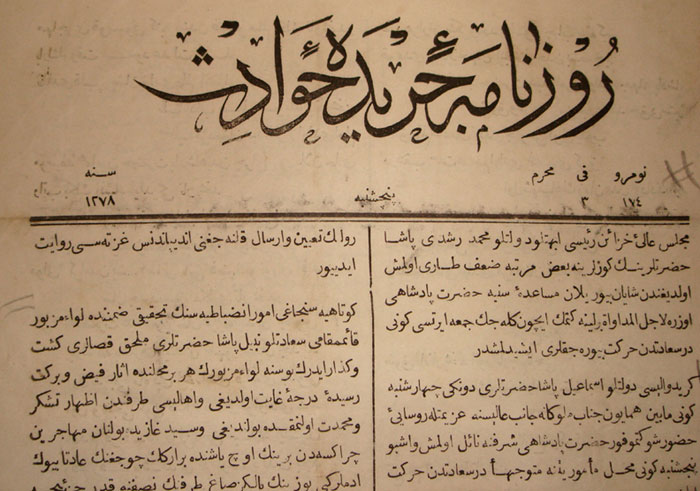 روزنامهٔ جریدهٔ حوادث
نومرو فی محرم سنه
۱۷٤ ۳ پنچشنبه ۱۲۷۸
مجلس عالیٔ خزائن رئیسی ابهتلو دولتلو محمد رشدی پاشا
حضرتلرینك کوزلرینه بعض مرتبه ضعف طاری اولمش
اولدیغندن شایان بیوریلان مساعدهٔ سنیه حضرت پادشاهی
اوزره لاجل المداواة پارسه کتمك ایچون کله جك جمعه ایرتسی کونی
درسعادتدن حرکت بیوره جقلری ایشیدلمشدر
کرید والیسی دولتلو اسماعیل پاشا حضرتلری دونکی چهارشنبه
کونی مابین همایون جناب ملوکانه جانب عالیسنه عزیمتله روسایئ
حضور شوکتموفور حضرت پادشاهی شرفنه نائل اولمش واشبو
پنجشنبه کونی محل مأموریتنه متوجهاً درسعادتدن حرکت
روالك تعیین وارسال قلنه جغنی اندیپاندنس غزته سی روایت
ایدییور
کوتاهیه سنجاغی امور انضباطیه سنك تحقیقی ضمننده لواء مزبور
قائممقامی سعادتلو پاشا حضرتلری ملحق قضالری کشت
وکذار ایدرك بوسنه لواء مزبورك هر بر محلنده اثار فیض وبرکت
رسیدهٔ درجهٔ غایت اولدیغی واهالیسی طرفندن اظهار تشکر
ومحمدت اولنمقده بولندیغی وسید غازیده بولنان مهاجرین
چراکسه دن برینك اوچ یاشنده بر ارکك چوجغنك عادتا بیوك
ادملر کبی یوزینك یالکز صاغ طرفنك نصفنه قدر